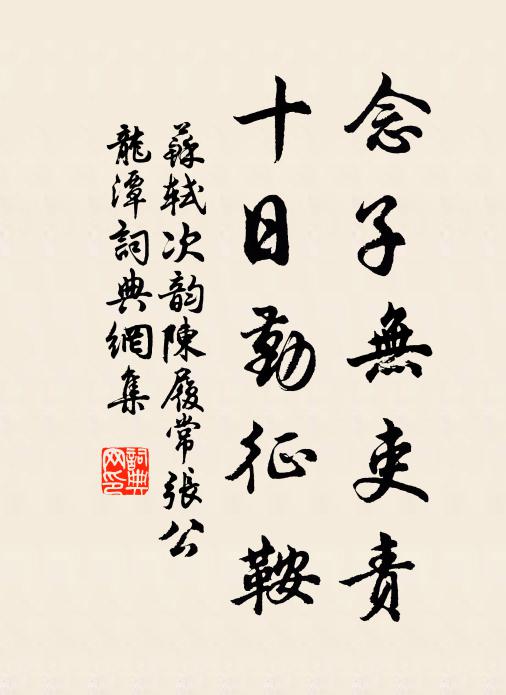 念子無吏責
十日勤征鞍
蘇軾次韵陳履常張公
龍潭詞典網集
詞典
网印